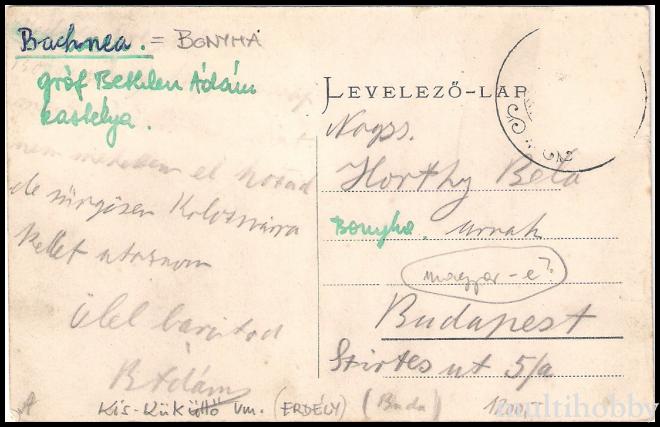 Bachnea. = BONYHA
gróf Bethlen Ádám
kastélya.
nem mehetem el hozád
de sürgősen Kolozsvárra
kellet utaznom
ölel barátod
B. Ádám
LEVELEZŐ-LAP
Nags.
Horthy Béla
Bonyha. urnak
magyar-e?
Budapest
Szirtes ut 5/a
Kis-Küküllő vm. (ERDÉLY) (Buda) 1200,-
multihobby